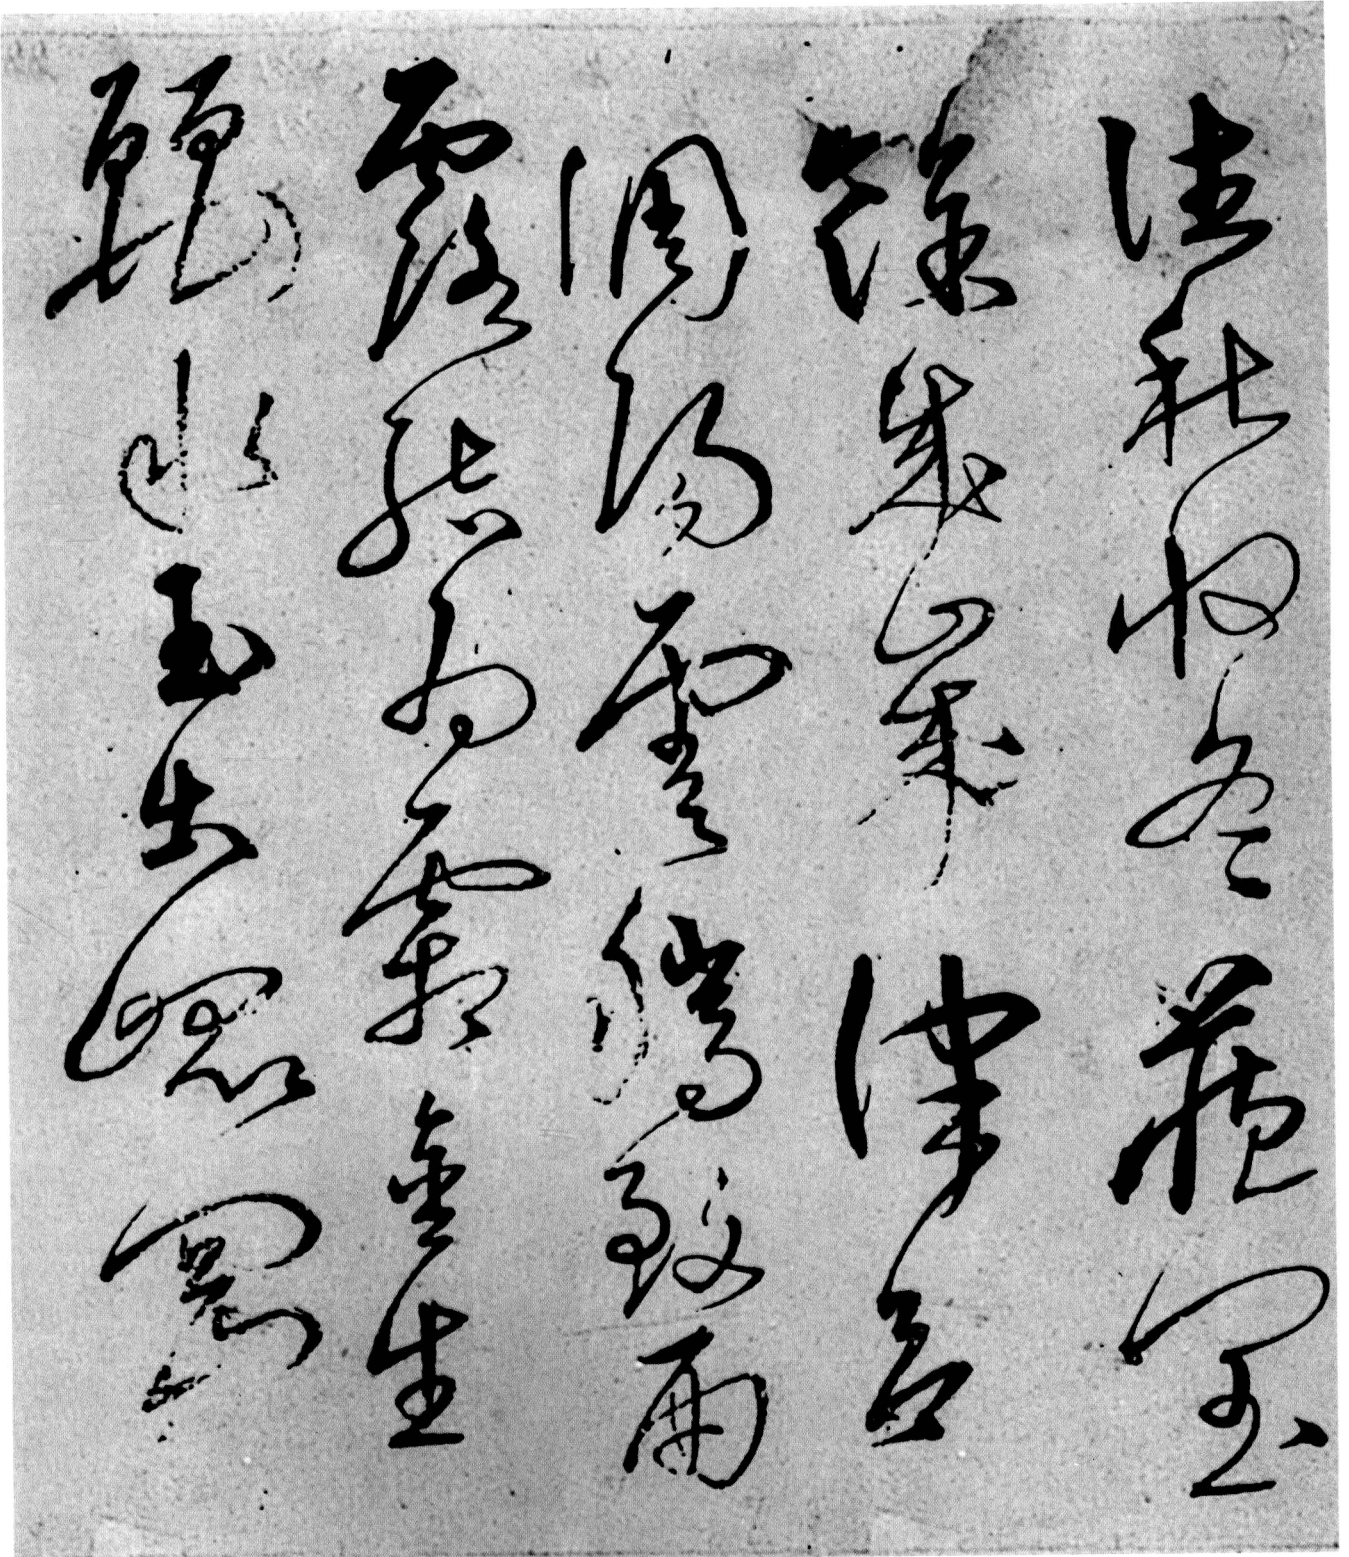 往秋收冬藏閏
餘成歲律呂
調陽雲騰致雨
露結為霜金生
麗水玉出崑岡